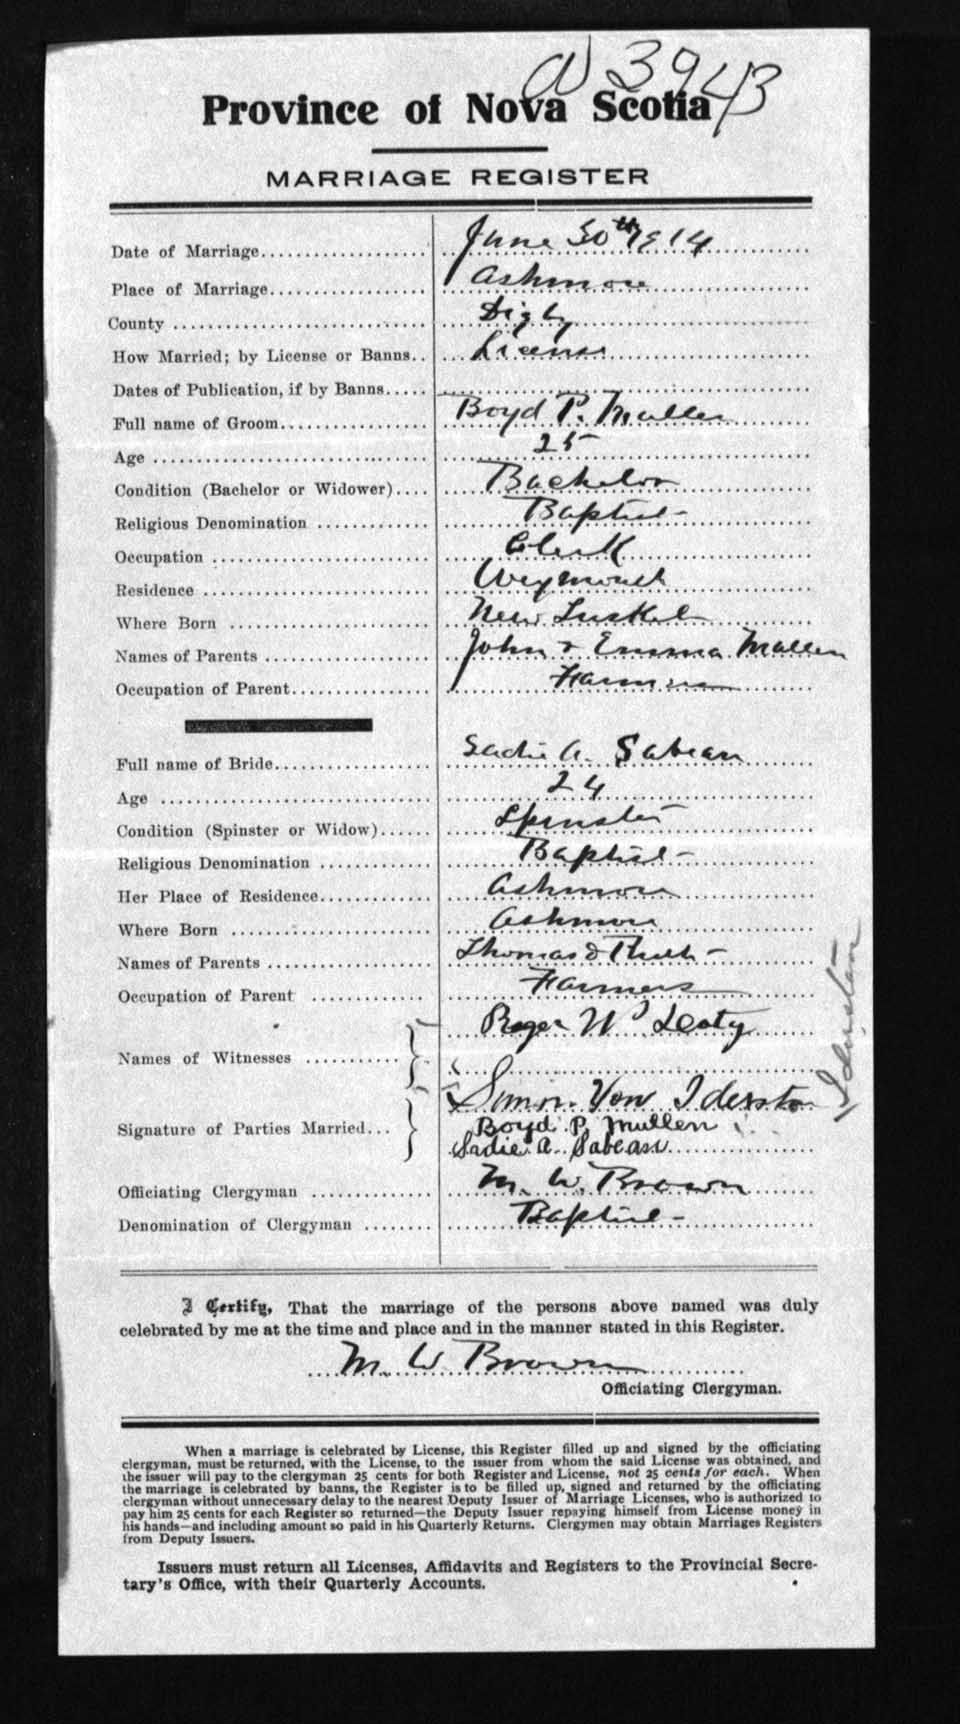 3943
Province of Nova Scotia
MARRIAGE REGISTER
Date of Marriage June 30th 1914
Place of Marriage Ashmore
County Digby
How Married; by License or Banns License
Dates of Publication, if by Banns
Full name of Groom Boyd P. Mullen
Age 25
Condition (Bachelor or Widower) Bachelor
Religious Denomination Baptist
Occupation Clerk
Residence Weymouth
Where Born New Tusket
Names of Parents John & Emma Mullen
Occupation of Parent
Full name of Bride Sadie A. Sabean
Age 24
Condition (Spinster or Widow) Spinster
Religious Denomination Baptist
Her Place of Residence Ashmore
Where Born Ashmore
Names of Parents Thomas & Ruth
Occupation of Parent Farmers
Names of Witnesses Roger W.
Simon Von Iderstn
Iderstn
Signature of Parties Married... Boyd P. Mullen
Sadie A. Sabean
Officiating Clergyman M. W. Brown
Denomination of Clergyman Baptist
I Certify, That the marriage of the persons above named was duly
celebrated by me at the time and place and in the manner stated in this Register.
M. W. Brown
Officiating Clergyman.
When a marriage is celebrated by License, this Register filled up and signed by the officiating
clergyman, must be returned, with the License, to the issuer from whom the said License was obtained, and
the issuer will pay to the clergyman 25 cents for both Register and License, not 25 cents for each. When
the marriage is celebrated by banns, the Register is to be filled up, signed and returned by the officiating
clergyman without unnecessary delay to the nearest Deputy Issuer of Marriage Licenses, who is authorized to
pay him 25 cents for each Register so returned—the Deputy Issuer repaying himself from License money in
his hands—and including amount so paid in his Quarterly Returns. Clergymen may obtain Marriages Registers
from Deputy Issuers.
Issuers must return all Licenses, Affidavits and Registers to the Provincial Secre-
tary's Office, with their Quarterly Accounts.